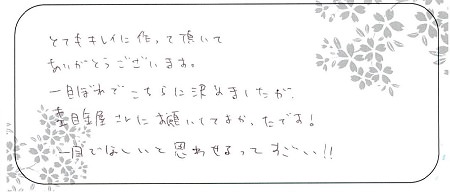 とてもキレイに作って頂いて
ありがとうございます。
一目ぼれでこちらに決めましたが、
杢目金屋さんにお願いしてよかったです!
一目でほしいと思わせるってすごい!!